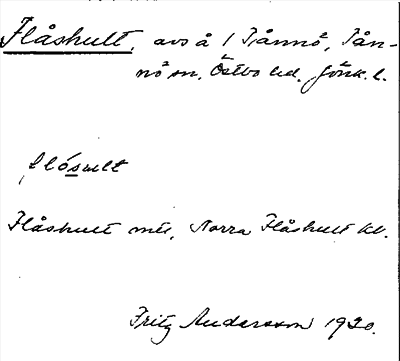 Flåshult, avs å 1 Tånnö, Tån-
nö sn. Östbo hd. Jönk. l.
flósult
Flåshult mtl, Norra Flåshult kv.
Fritz Andersson 1920.